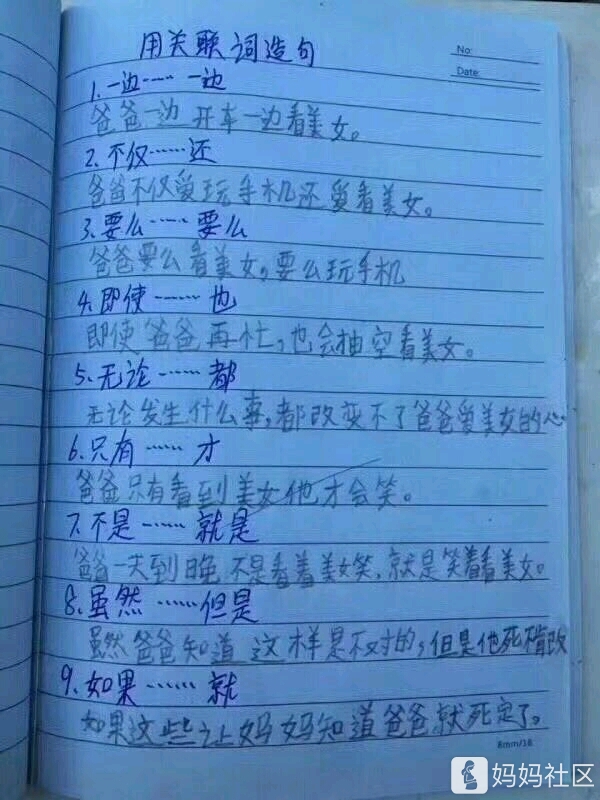 用关联词造句
No:
Date:
1.一边……一边
爸爸一边开车一边看美女。
2.不仅……还
爸爸不仅爱玩手机还爱看美女。
3.要么……要么
爸爸要么看美女,要么玩手机
4.即使……也
即使爸爸再忙,也会抽空看美女。
5.无论……都
无论发生什么事,都改变不了爸爸爱美女的心
6.只有……才
爸爸只有看到美女他才会笑。
7.不是……就是
爸爸一天到晚不是看着美女笑,就是笑着看美女。
8.虽然……但是
虽然爸爸知道这样是不对的,但是他死犄改
9.如果……就
如果这些让妈妈知道爸爸就死定了。
8mm/18
妈妈社区